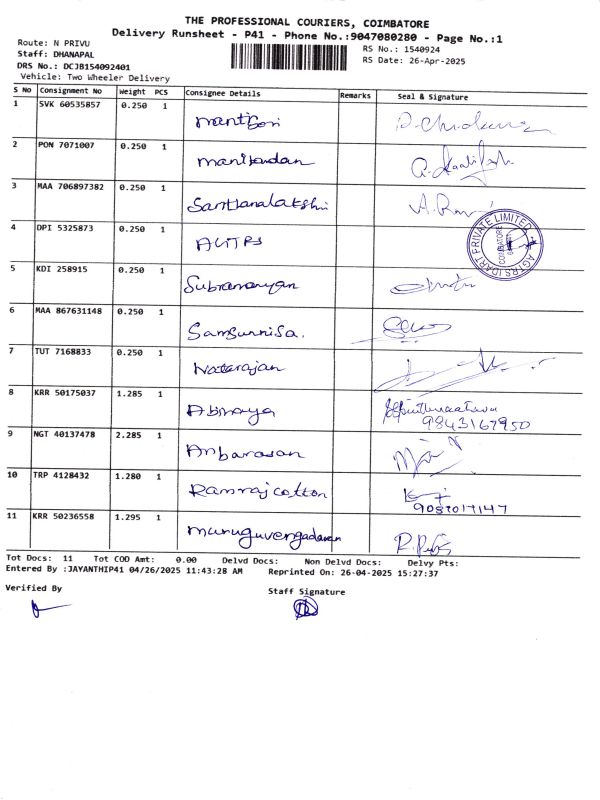 THE PROFESSIONAL COURIERS, COIMBATORE
Delivery Runsheet - P41 - Phone No.:9047080280 - Page No.:1
Route: N PRIVU
RS No.: 1540924
Staff: DHANAPAL
RS Date: 26-Apr-2025
DRS No.: DCJB154092401
Vehicle: Two Wheeler Delivery
S No Consignment No Weight PCS Consignee Details Remarks Seal & Signature
1 SVK 60535857 0.250 1
2 PON 7071007 0.250 1 Manikandan
3 MAA 706897382 0.250 1 Santhanalakshi A. Ravi
4 DPI 5325873 0.250 1 AGTRS
AGTRS IDART PRIVATE LIMITED
COIMBATORE
5 KDI 258915 0.250 1 Subramanyan
6 MAA 867631148 0.250 1 Samsunnisa.
7 TUT 7168833 0.250 1 Natarajan
8 KRR 50175037 1.285 1 Abinaya
9843167950
9 NGT 40137478 2.285 1 Anbarasan
10 TRP 4128432 1.280 1 Ramraj cotton
9087017147
11 KRR 50236558 1.295 1 Muruguvengadavan
Tot Docs: 11 Tot COD Amt: 0.00 Delvd Docs: Non Delvd Docs: Delvy Pts:
Entered By :JAYANTHIP41 04/26/2025 11:43:28 AM Reprinted On: 26-04-2025 15:27:37
Verified By
Staff Signature